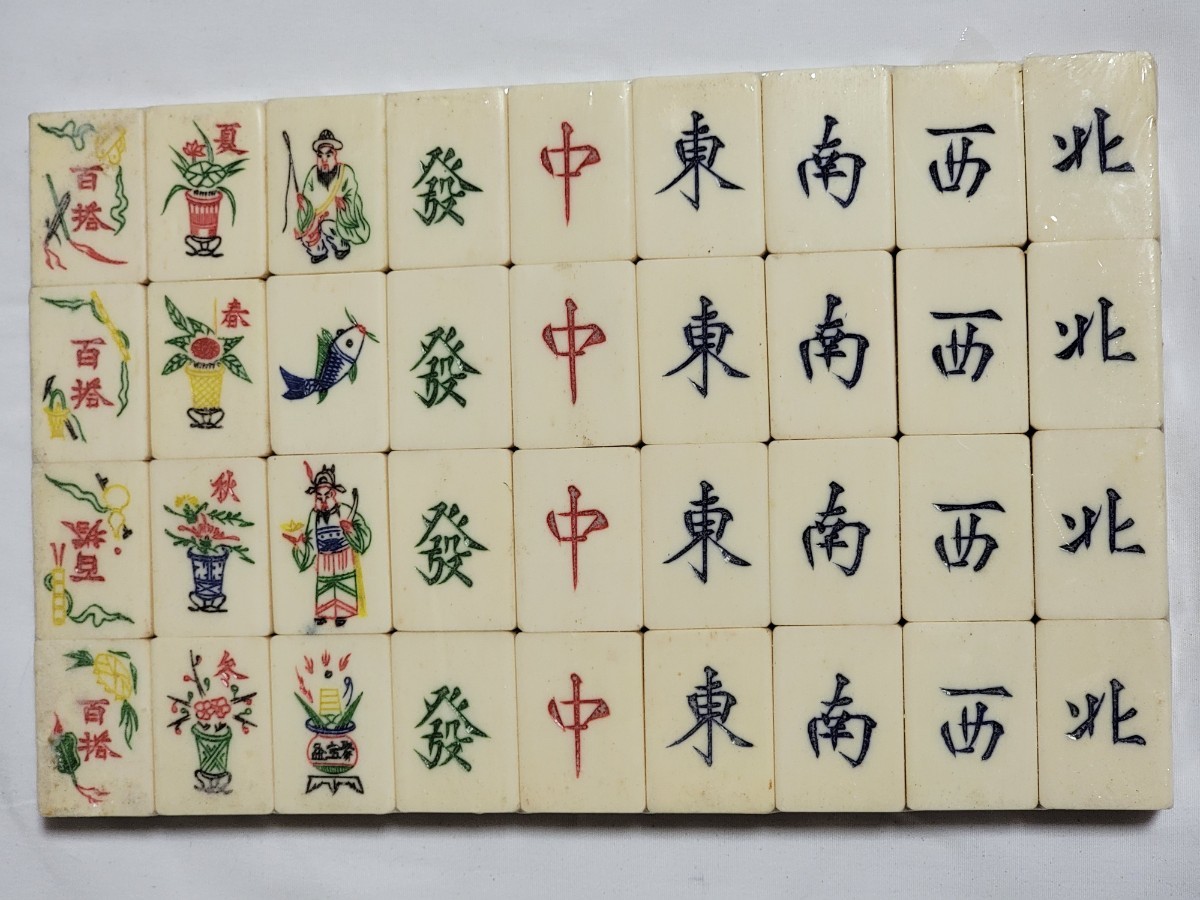 百搭 夏 發 中 東 南 西 北
百搭 春 發 中 東 南 西 北
百搭 秋 發 中 東 南 西 北
百搭 冬 聚宝盆 發 中 東 南 西 北